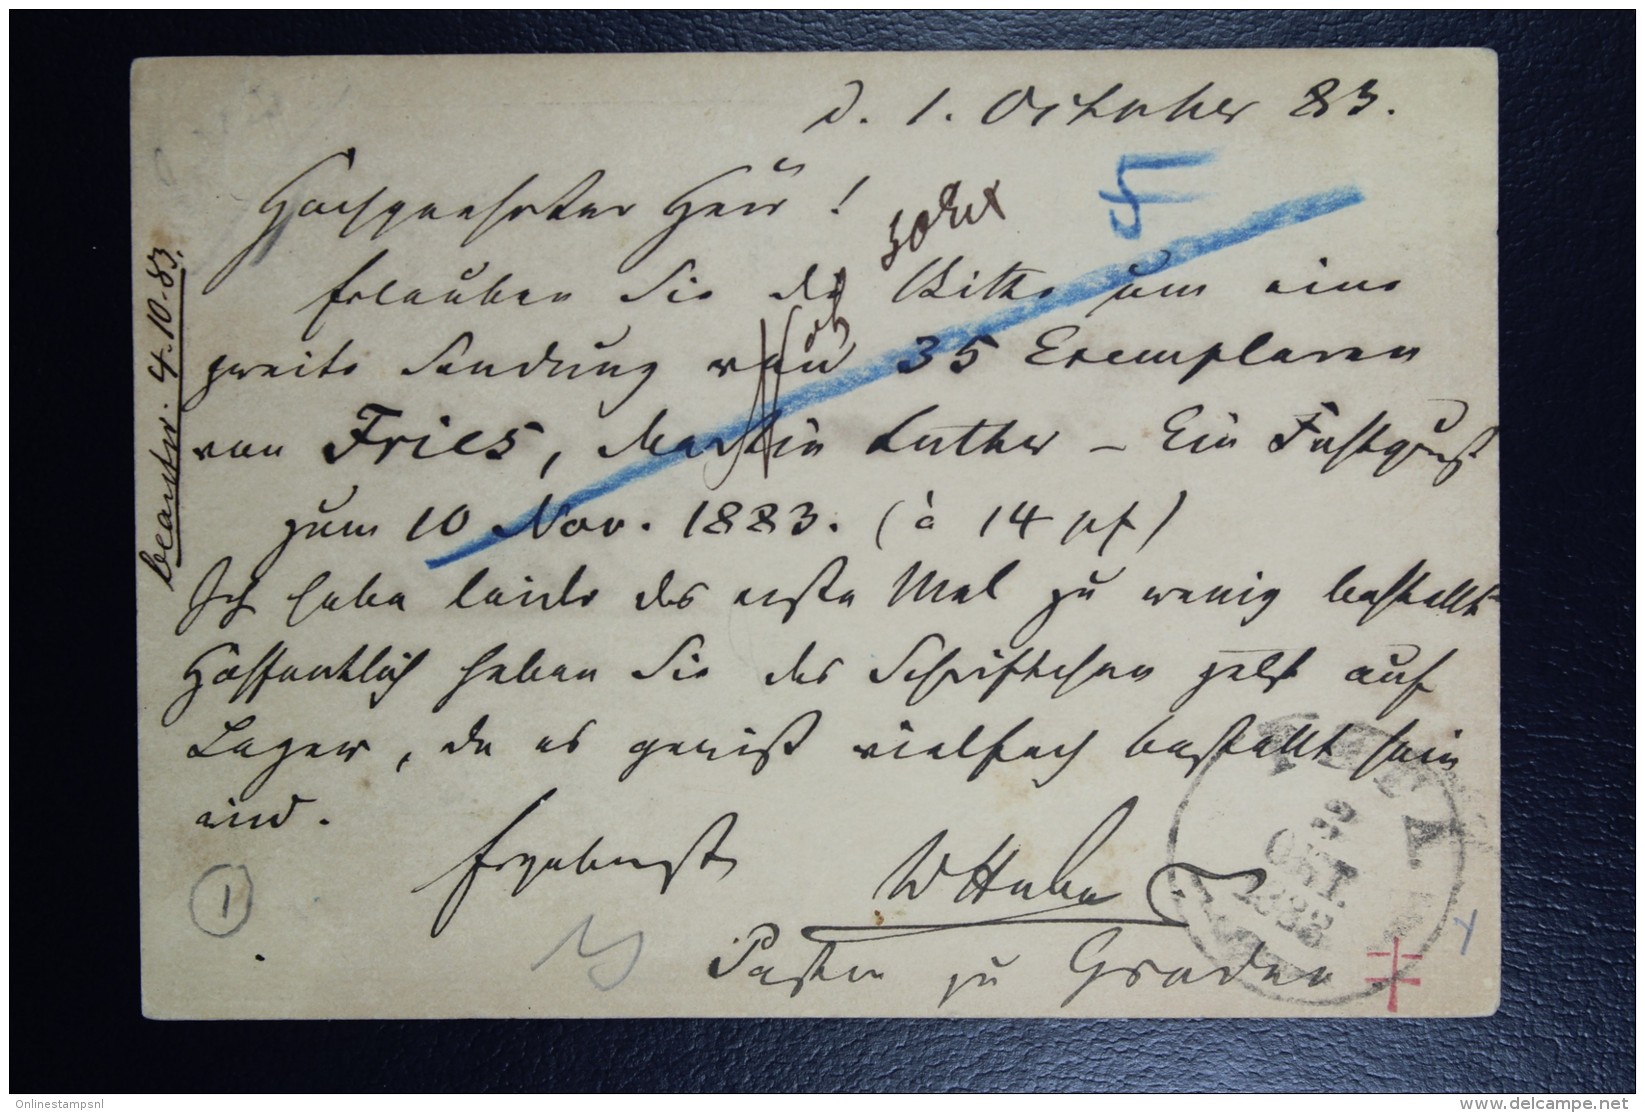 d. 1. October 83.
Hochgeehrter Herr!
Erlauben Sie die Bitte um eine
zweite Sendung von 35 Exemplaren
von Fries, Martin Luther – Ein Festgruß
zum 10 Nov. 1883. (à 14 pf)
Ich habe leider das erste Mal zu wenig bestellt
Hoffentlich haben Sie das Schriftchen selbst auf
Lager, da es gewiß vielfach bestellt sein
wird.
Ergebenst
Pastor zu
beantw. 4.10.83.
OKT.
1
Onlinestampsnl
delcampe.net